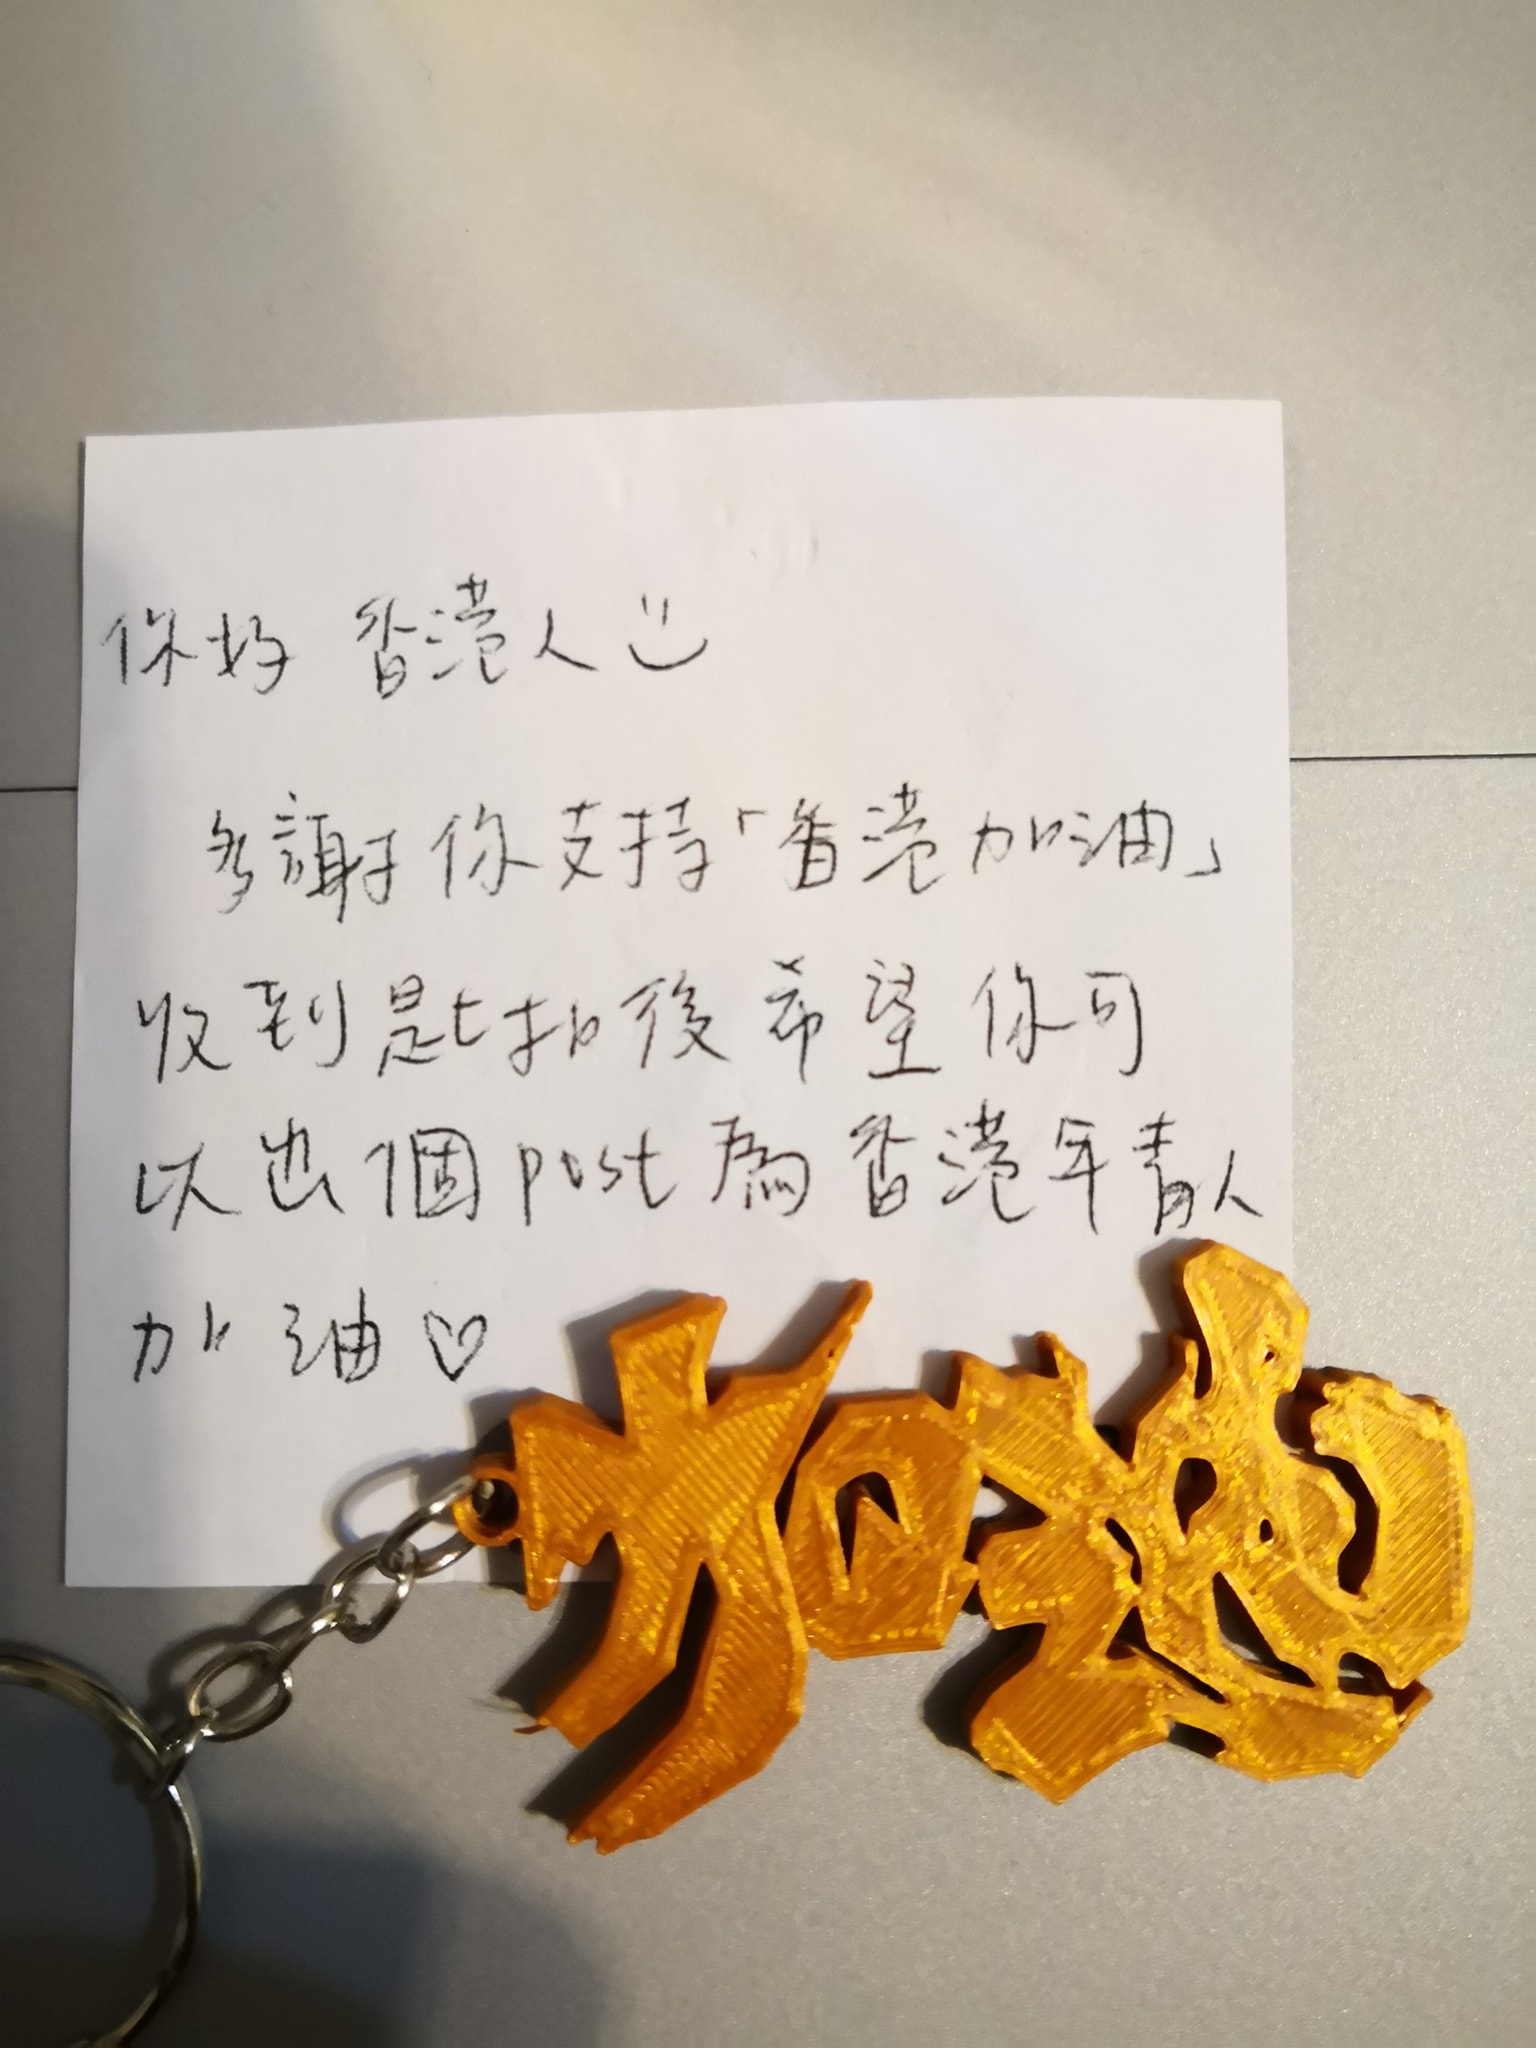 你好 香港人
多謝你支持「香港加油」
收到匙扣後希望你可
以出個post為香港年青人
加油♡